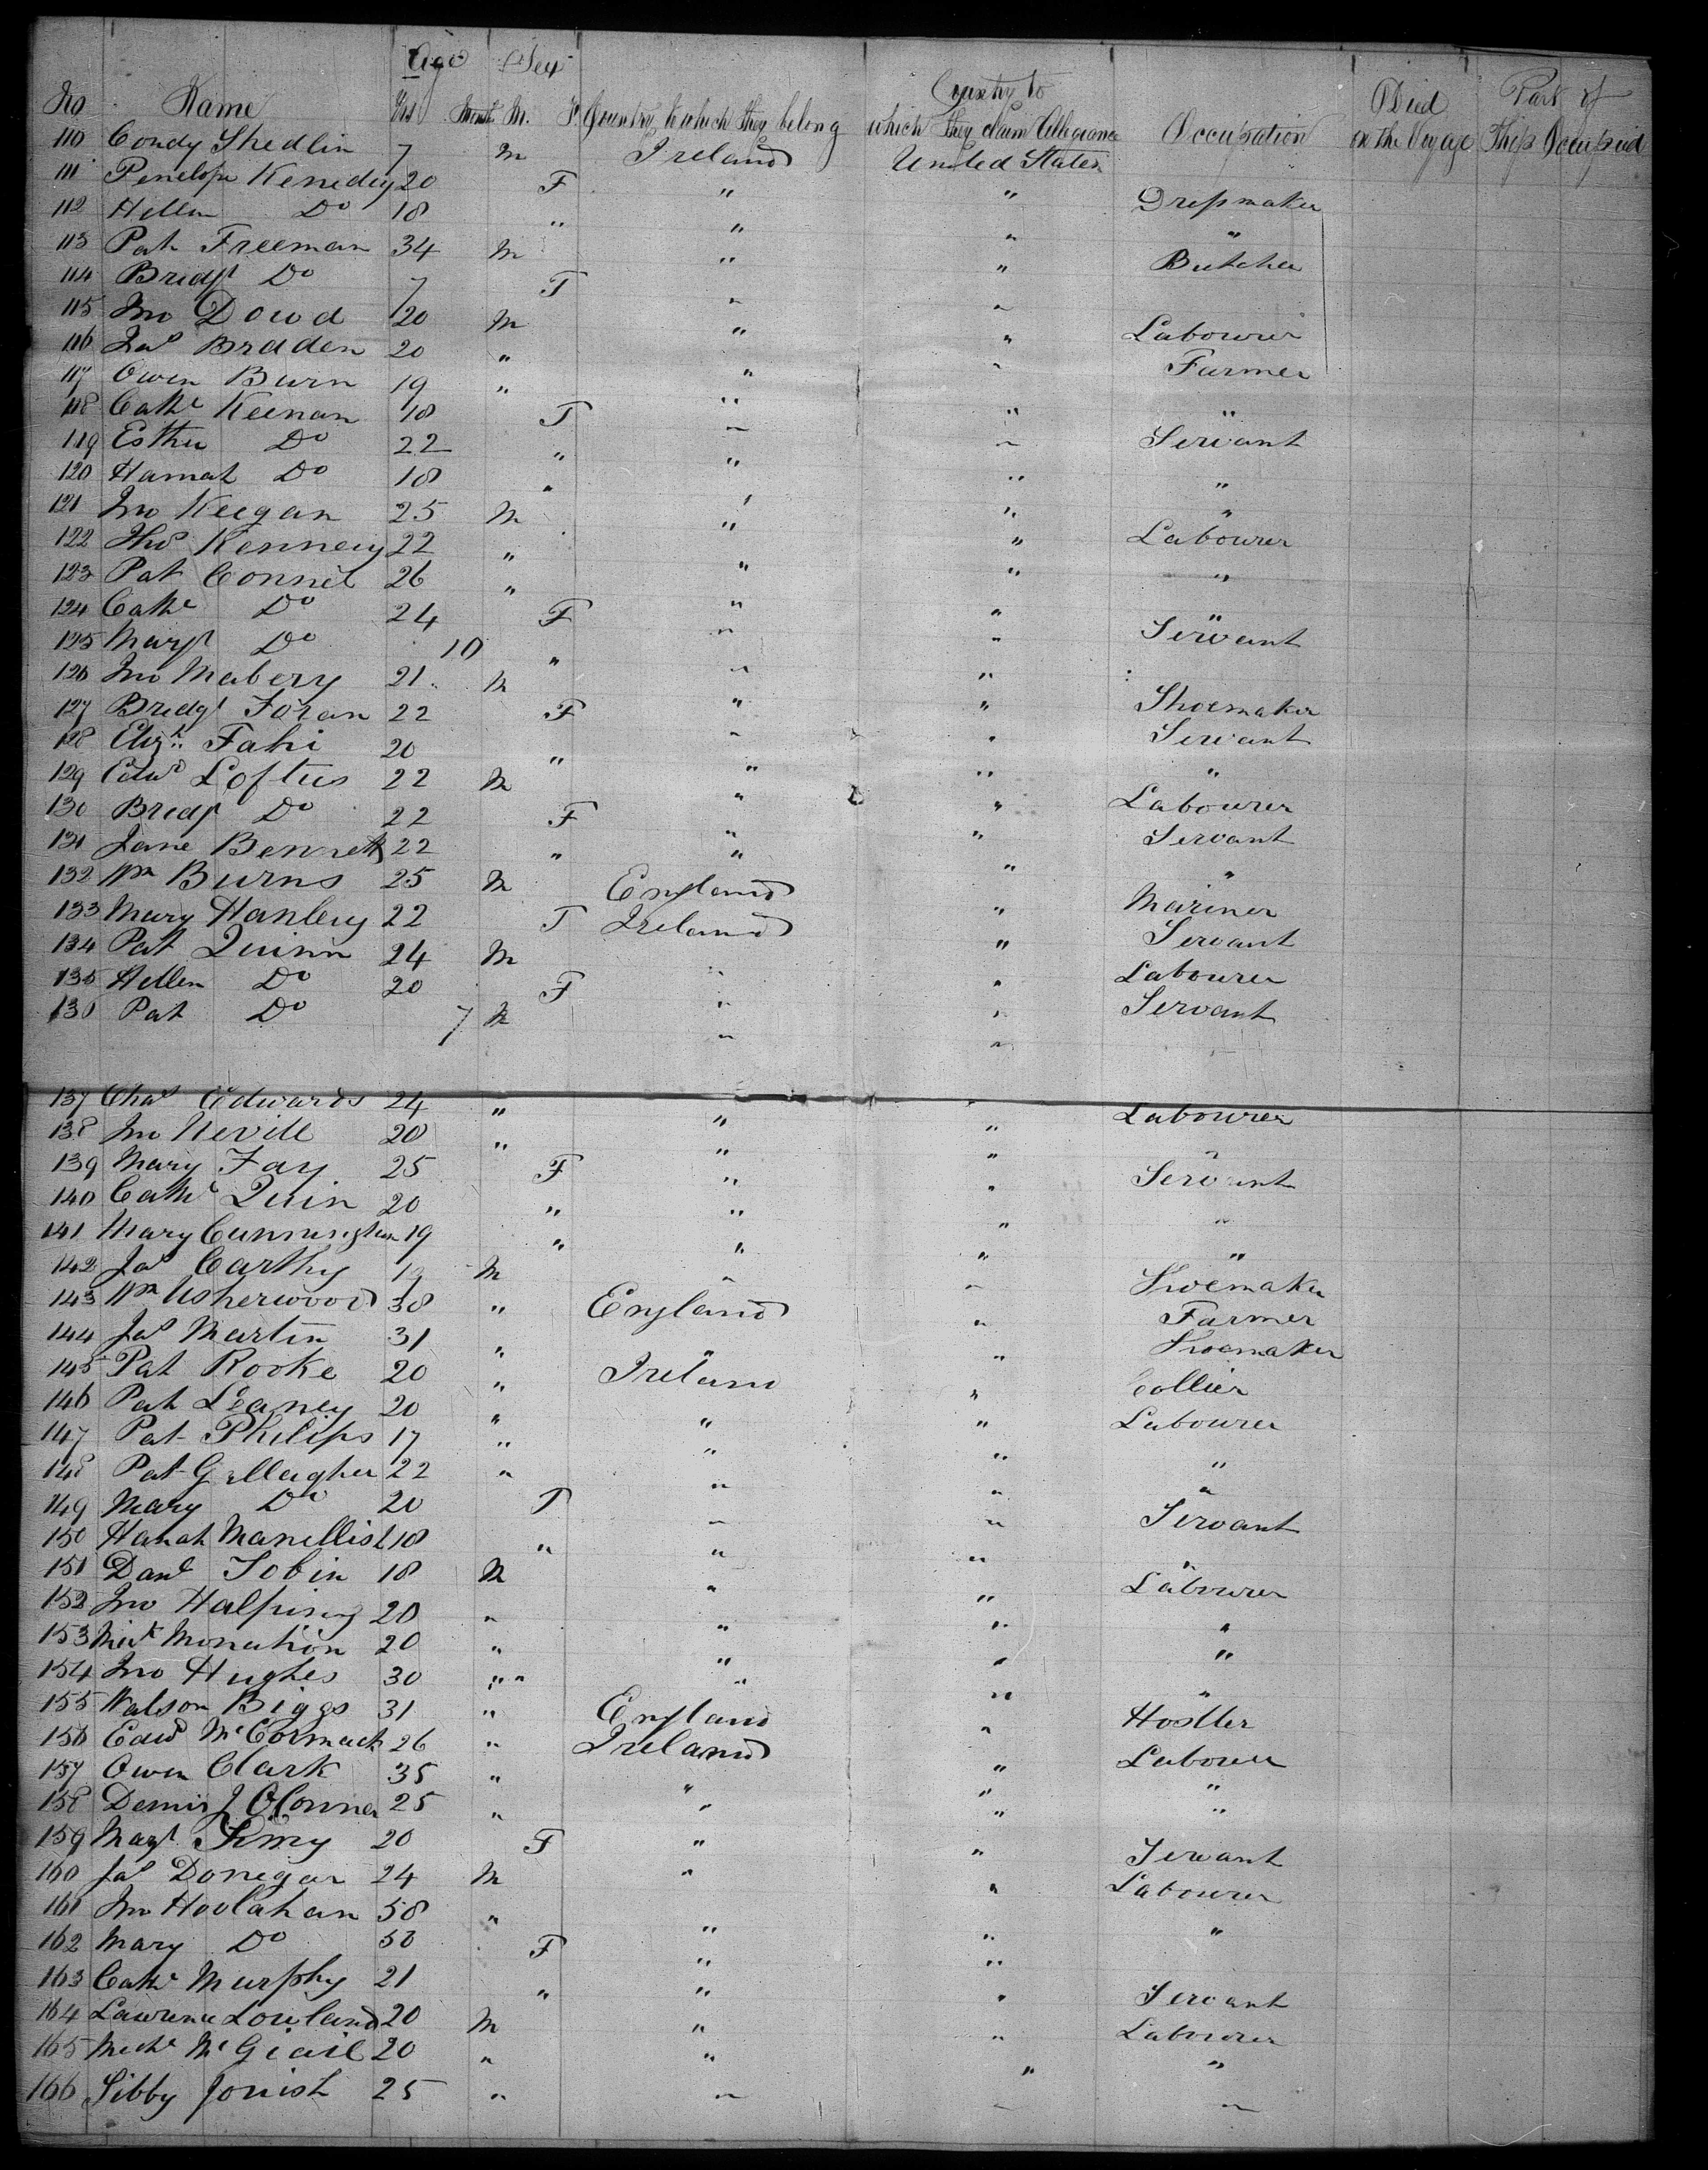 Age Sex
Country to Died Part of
No Name Yrs Month M. F. Country to which they belong which they claim Allegiance Occupation on the Voyage Ship Occupied
110 Condy Shedlin 7 M Ireland United States
111 Penelope Kenedey 20 F " " Dressmaker
112 Hellen Do 18 " " " "
113 Pat Freeman 34 M " " Butcher
114 Bridgt Do 7 F " "
115 Jno Dowd 20 M " " Labourer
116 Jas Bradden 20 " " " Farmer
117 Owen Burn 19 " " " "
118 Cathe Keenan 18 F " " Servant
119 Esther Do 22 " " " "
120 Hannah Do 18 " " " "
121 Jno Keegan 25 M " " Labourer
122 Thos Kennery 22 " " " "
123 Pat Connel 26 " " " "
124 Cathe Do 24 F " " Servant
125 Margt Do 10 " " "
126 Jno Mabery 21 M " " Shoemaker
127 Bridgt Foran 22 F " " Servant
128 Elizh Fahi 20 " " " "
129 Edwd Loftus 22 M " " Labourer
130 Bridgt Do 22 F " " Servant
131 Jane Bennett 22 " " " "
132 Wm Burns 25 M England " Mariner
133 Mary Hanley 22 F Ireland " Servant
134 Pat Quinn 24 M " " Labourer
135 Hellen Do 20 F " " Servant
136 Pat Do 7 M " "
137 Chas Edwards 24 " " " Labourer
138 Jno Nevill 20 " " " "
139 Mary Fay 25 F " " Servant
140 Cathe Quin 20 " " " "
141 Mary Cunningham 19 " " " "
142 Jas Carthy 19 M " " Shoemaker
143 Wm Usherwood 38 " England " Farmer
144 Jas Martin 31 " " " Shoemaker
145 Pat Rooke 20 " Ireland " Collier
146 Pat Leaney 20 " " " Labourer
147 Pat Philips 17 " " " "
148 Pat Gallagher 22 " " " "
149 Mary Do 20 F " " Servant
150 Hanah 18 " " " "
151 Danl Tobin 18 M " " Labourer
152 Jno Halpiny 20 " " " "
153 Monation 20 " " " "
154 Jno Hughes 30 " " " "
155 Watson Biggs 31 " England " Hostler
156 Edwd McCormack 26 " Ireland " Labourer
157 Owen Clark 35 " " " "
158 Dennis J OConner 25 " " " "
159 Magt 20 F " " Servant
160 Jas Donegan 24 M " " Labourer
161 Jno Hoolahan 58 " " " "
162 Mary Do 50 F " "
163 Cathe Murphy 21 " " " Servant
164 Lawrence Louland 20 M " " Labourer
165 Michl 20 " " " "
166 Sibby 25 " " " "